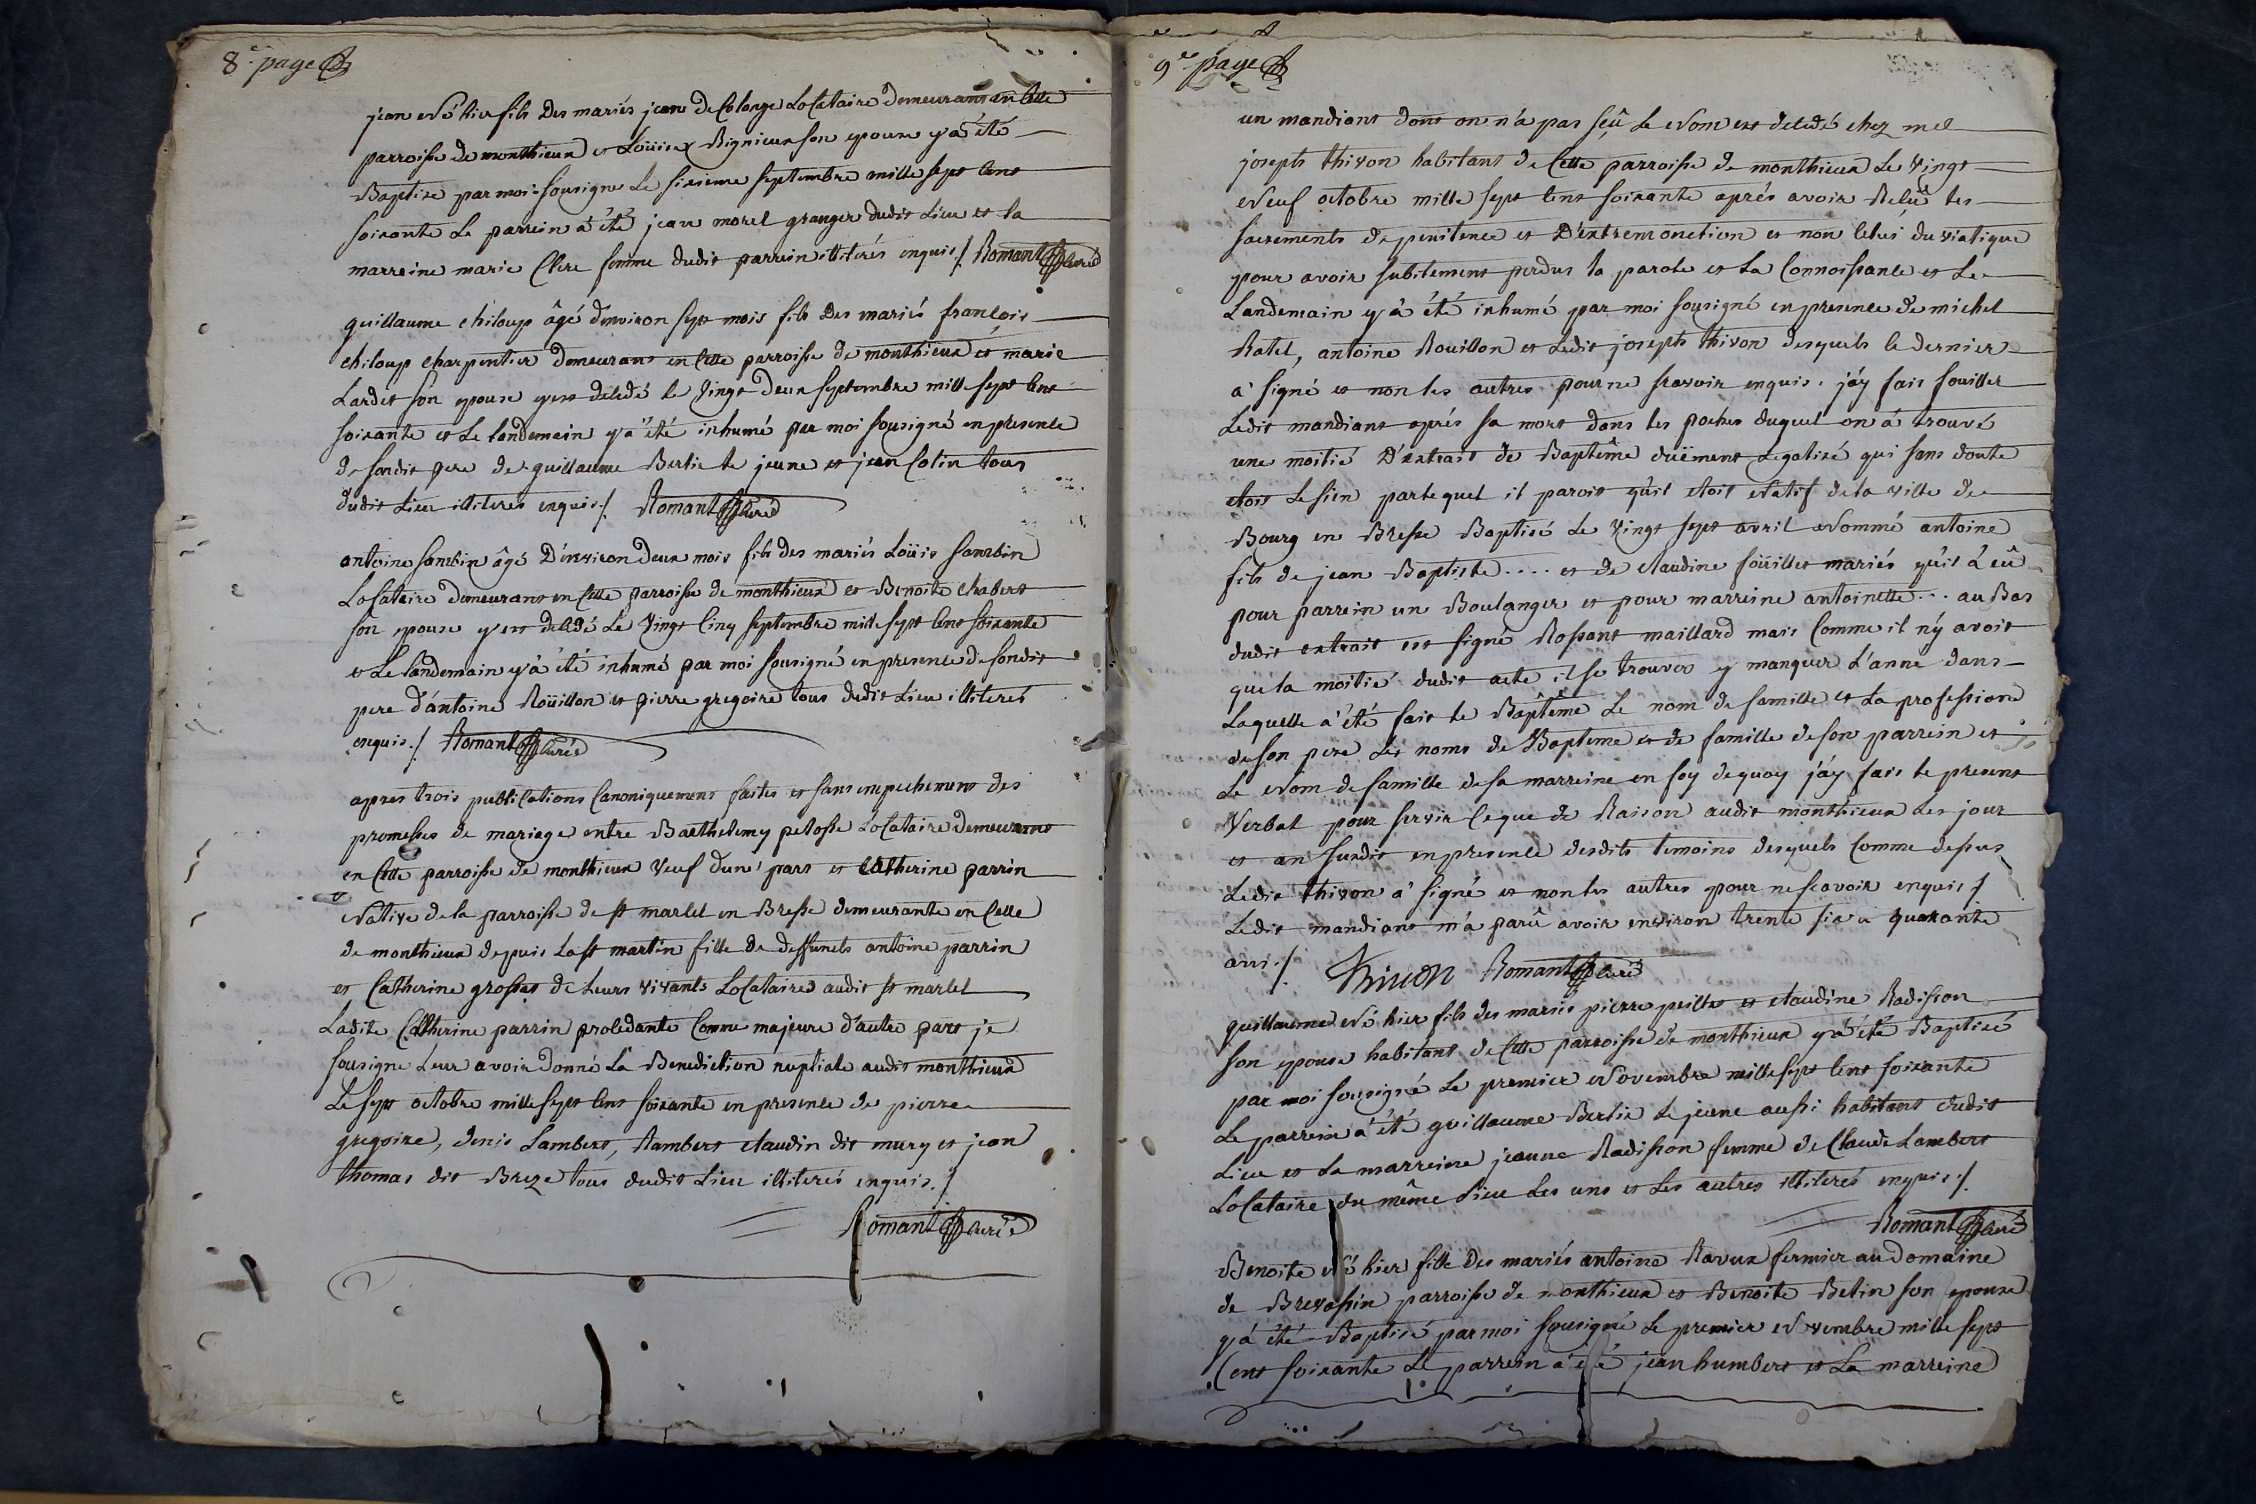 8e page
jean Né hier fils Des mariés jean De Colonge LoCataire Demeurant en Cette
parroisse de monthieux et Loüise Rignieux son epouse y a été
Baptise par moi sousigné Le sixieme septembre mille sept Cent
soixante Le parrein à été jean morel granger dudit Lieu et la
marreine marie Clere femme dudit parrein illiterés enquis ./. Romant Curé
guillaume chiloup âgé d'environ sept mois fils Des mariés françois
chiloup charpentier demeurant en Cette parroisse de monthieux et marie
Lardet son epouse y est décédé le Vingt Deux septembre mille sept Cent
soixante et Le landemain y a été inhumé par moi sousigné en presence
de sondit pere de guillaume Berlie le jeune et jean Colin tous
dudit Lieu illiterés enquis ./. Romant Curé
antoine sambin âgé D'environ Deux mois fils des mariés Loüis sambin
LoCataire demeurant en Cette parroisse de monthieux et Benoite Chabert
son epouse y est décédé Le Vingt Cinq septembre mille sept Cent soixante
et Le landemain y à été inhumé par moi sousigné en presence de sondit
pere d'antoine Roüillon et pierre gregoire tous dudit Lieu illiterés
enquis ./. Romant Curé
apres trois publiCations Canoniquement faites et sans empechement des
promesses de mariage entre Barthelemy pelosse LoCataire demeurant
en Cette parroisse de monthieux Veuf d'une part et Catherine parrin
Native de la parroisse de st marcel en Bresse demeurante en Celle
de monthieux depuis La st martin fille de deffuncts antoine parrin
et Catherine grosset de Leurs vivants LoCataires audit st marcel
Ladite Catherine parrin proCedante Comme majeure d'autre part je
sousigné Leur avoir Donné La Benediction nuptiale audit monthieux
Le sept octobre mille sept Cent soixante en presence de pierre
gregoire, denis Lambert, Rambert claudin dit mury et jean
thomas dit Breze tous dudit Lieu illiterés enquis ./.
Romant Curé
9e page
un mandiant dont on n'a pas sçû Le Nom est décédé chez
joseph thivon habitant de Cette parroisse de monthieux Le Vingt
Neuf octobre mille sept Cent soixante aprés avoir Reçû les
sacrements de penitence et D'extremonction et non Celui du viatique
pour avoir subitement perdus la parole et La Connoissance et Le
Landemain y à été inhumé par moi sousigné en presence de michel
Ratel, antoine Rouillon et Ledit joseph thivon desquels le dernier
à signé et non les autres pour ne sçavoir enquis. j'ay fait fouiller
Ledit mandiant aprés sa mort dans les poches duquel on à trouvé
une moitié D'extrait de Baptême düement Legalisé qui sans doute
étoit Le sien par lequel il paroit qu'il étoit Natif de la ville de
Bourg en Bresse Baptisé Le Vingt sept avril Nommé antoine
fils de jean Baptiste .... et de claudine soüillet mariés qu'il à eû
pour parrein un Boulanger et pour marreine antoinette ... au Bas
dudit extrait est signé Rossant maillard mais Comme il n'y avoit
que la moitié dudit acte, il se trouver y manquer L'anné dans
Laquelle à été fait le Baptême Le nom de famille et La profession
de son pere Les noms de Bapteme et de famille de son parrein et
Le Nom de famille de sa marreine en foy de quoy j'ay fait le present
Verbal pour servir Ce que de Raison audit monthieux Les jour
et an susdit en presence desdits temoins desquels Comme dessus
Ledit thivon à signé et non les autres pour ne scavoir enquis ./
Ledit mandiant m'a parû avoir environ trente six à quarante
ans ./. Thivon Romant Curé
guillaume Né hier fils des mariés pierre et claudine Radisson
son epouse habitant de Cette parroisse de monthieux y à été Baptisé
par moi sousigné Le premier Novembre mille sept Cent soixante
Le parrein à été guillaume Berlie Le jeune aussi habitant dudit
Lieu et La marreine jeanne Radisson femme de Claude Lambert
LoCataire du même Lieu Les uns et Les autres illiterés enquis ./.
Romant Curé
Benoite Né hier fille Des mariés antoine Ravux fermier au Domaine
de Brevassin parroisse de monthieux et Benoite Belin son epouse
y à été Baptisé par moi sousigné Le premier Novembre mille sept
Cent soixante Le parrein à été jean humbert et La marreine